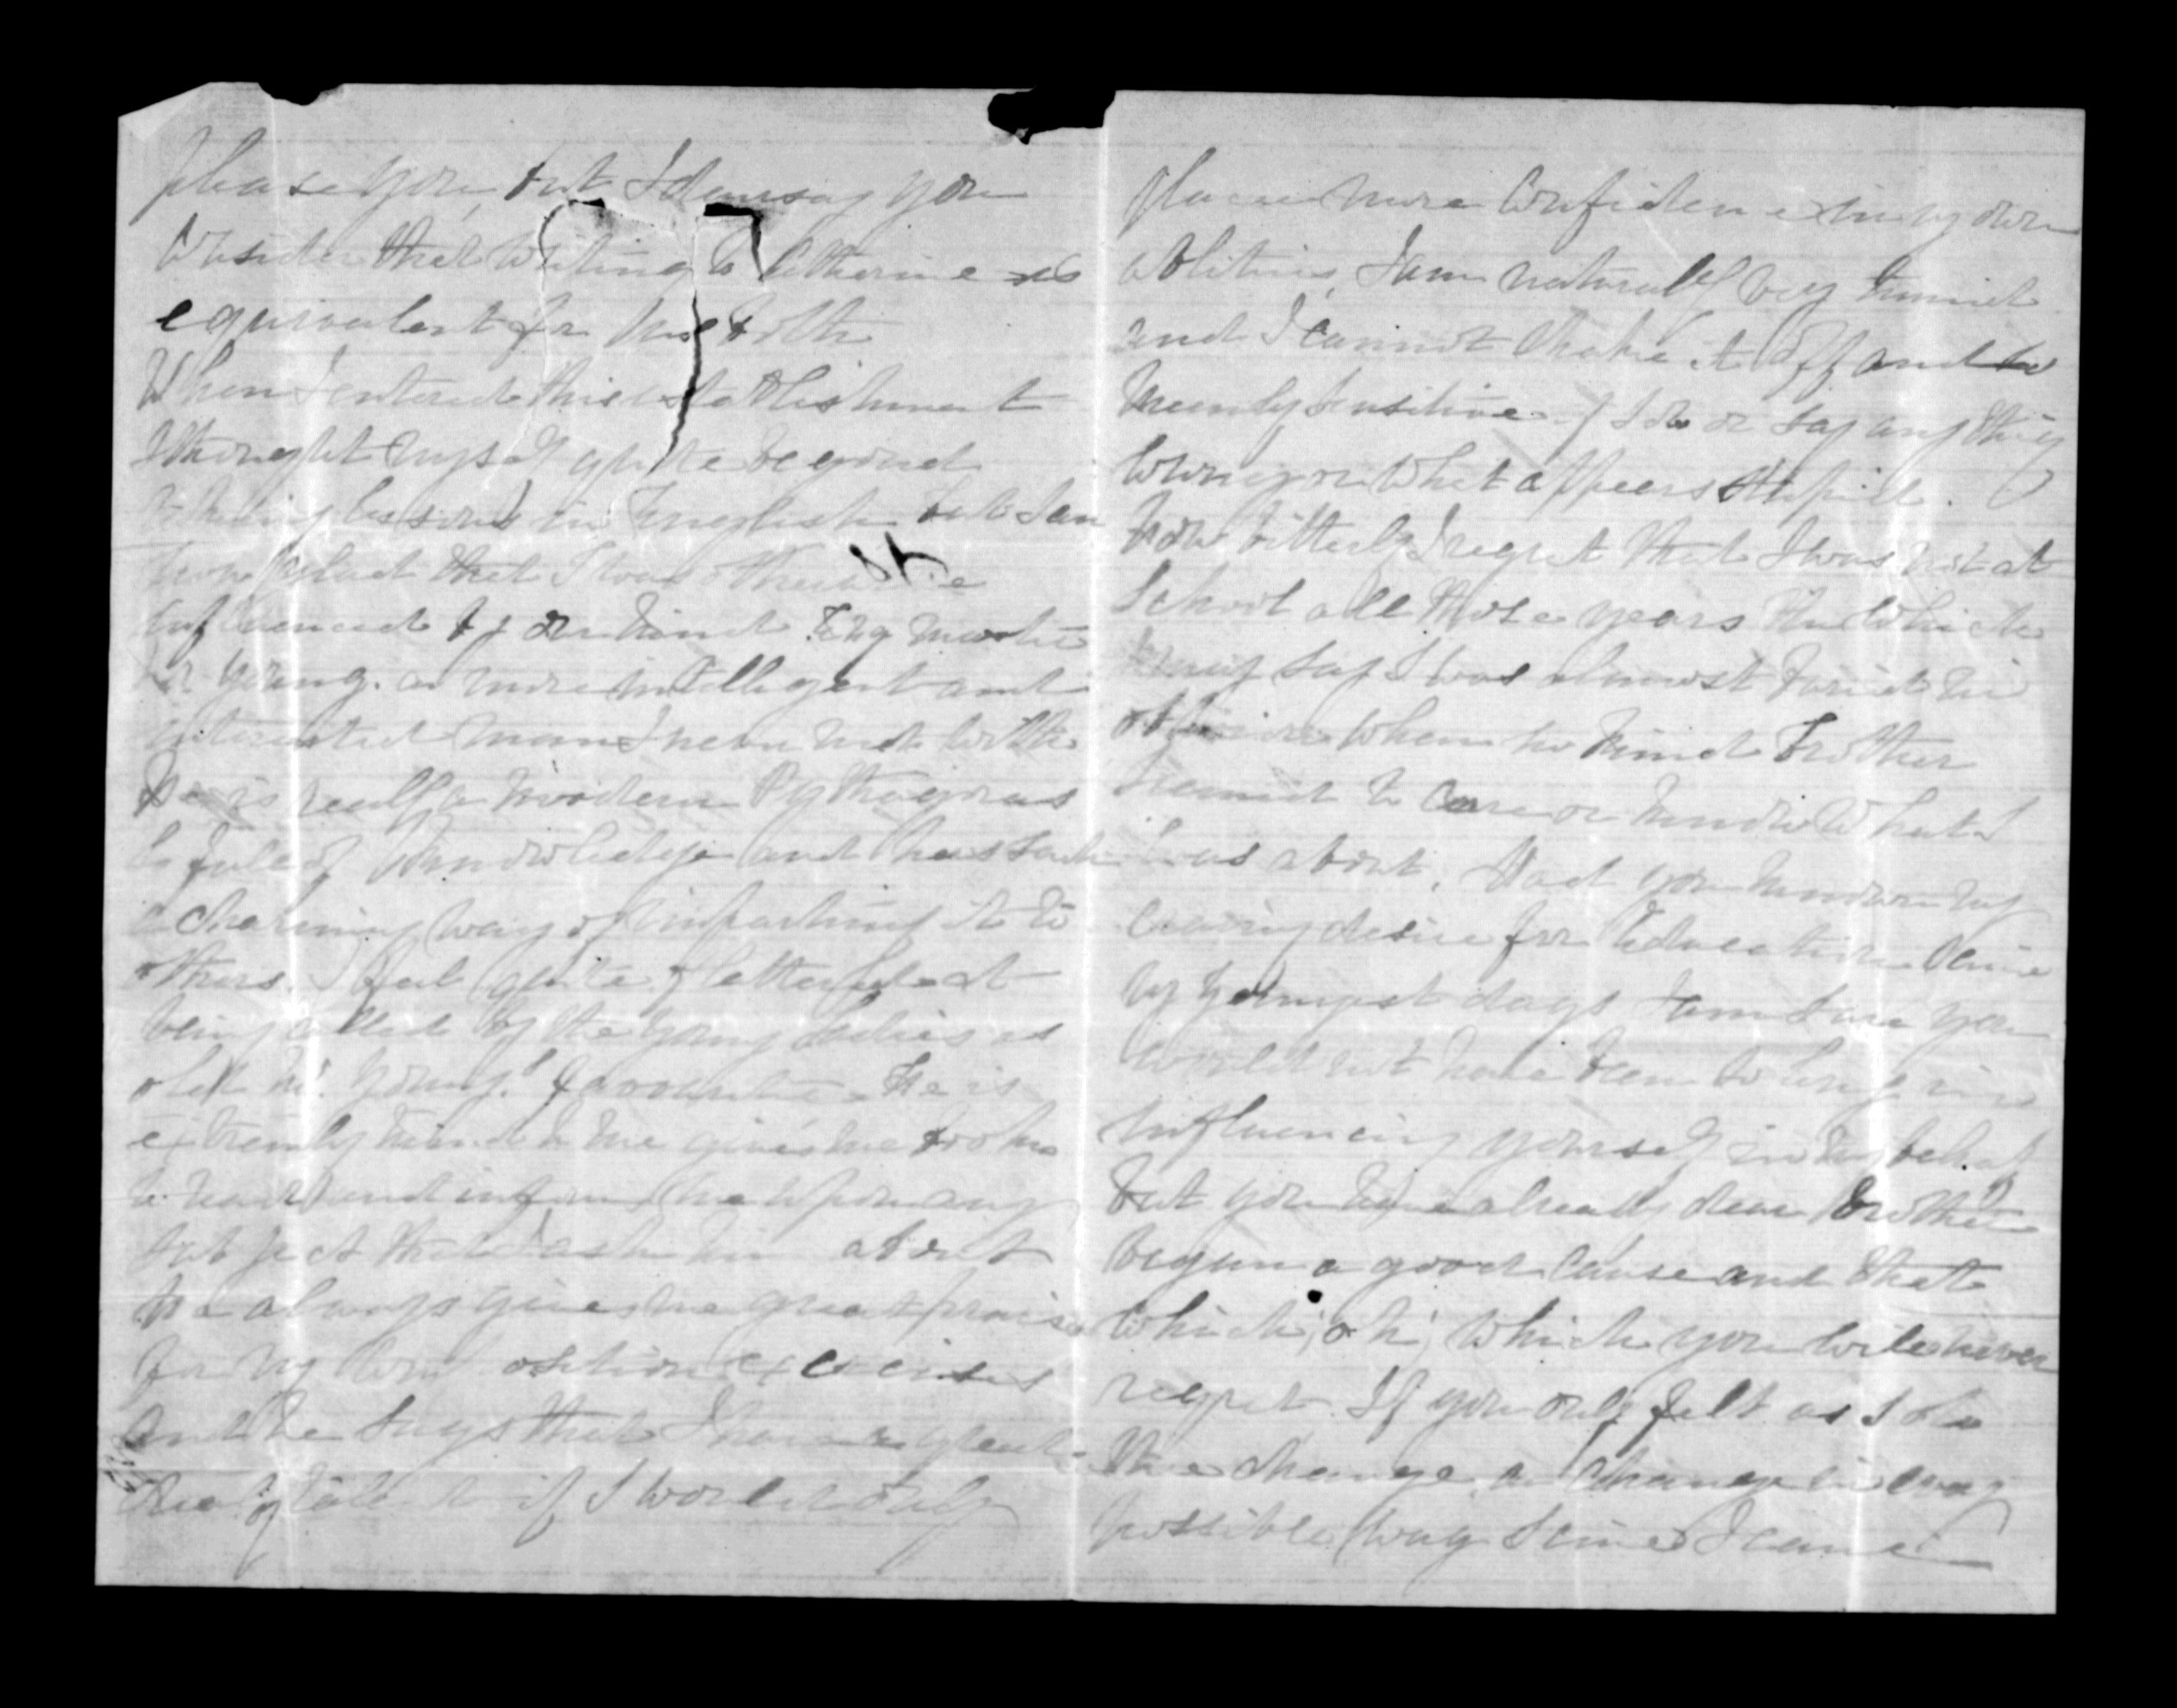 please you, but I daresay you
consider that writing to Catherine is
equivalent for us both
When I entered this establishment
I thought myself quite beyond
taking lessons in English but I am
now glad that I was otherwise
influenced by our kind Eng master
Mr Young. a more intelligent and
interested man I never met with
He is really a modern Pythagoras
is full of knowledge and has such
a charming way of imparting it to
others. I feel quite flattered at
being called by the young ladies as
old Mr Young's favourite. He is
extremly kind to me gives me books
to read and informs me upon any
subject that I ask him about
he always gives me great praise
for my composition exercises
and he says that I have a great
deal of talent if I would only
place more confidence in my own
abilities, I am naturally very timid
and I cannot shake it off and so
keenly sensitive if I do or say any thing
wrong or what appears stupid.
how bitterly I regret that I was not at
school all those years in which
I may say I was almost buried in
when no kind Brother
seemed to care or know what I
was about. Had you known my
craving desire for Education since
my youngest days I am sure you
would not have been so long in
influencing yourself in my behalf
but you have already dear Brother
begun a good cause and that
which, oh, which you will never
regret. If you only felt as I do
the change, a change in every
possible way since I came